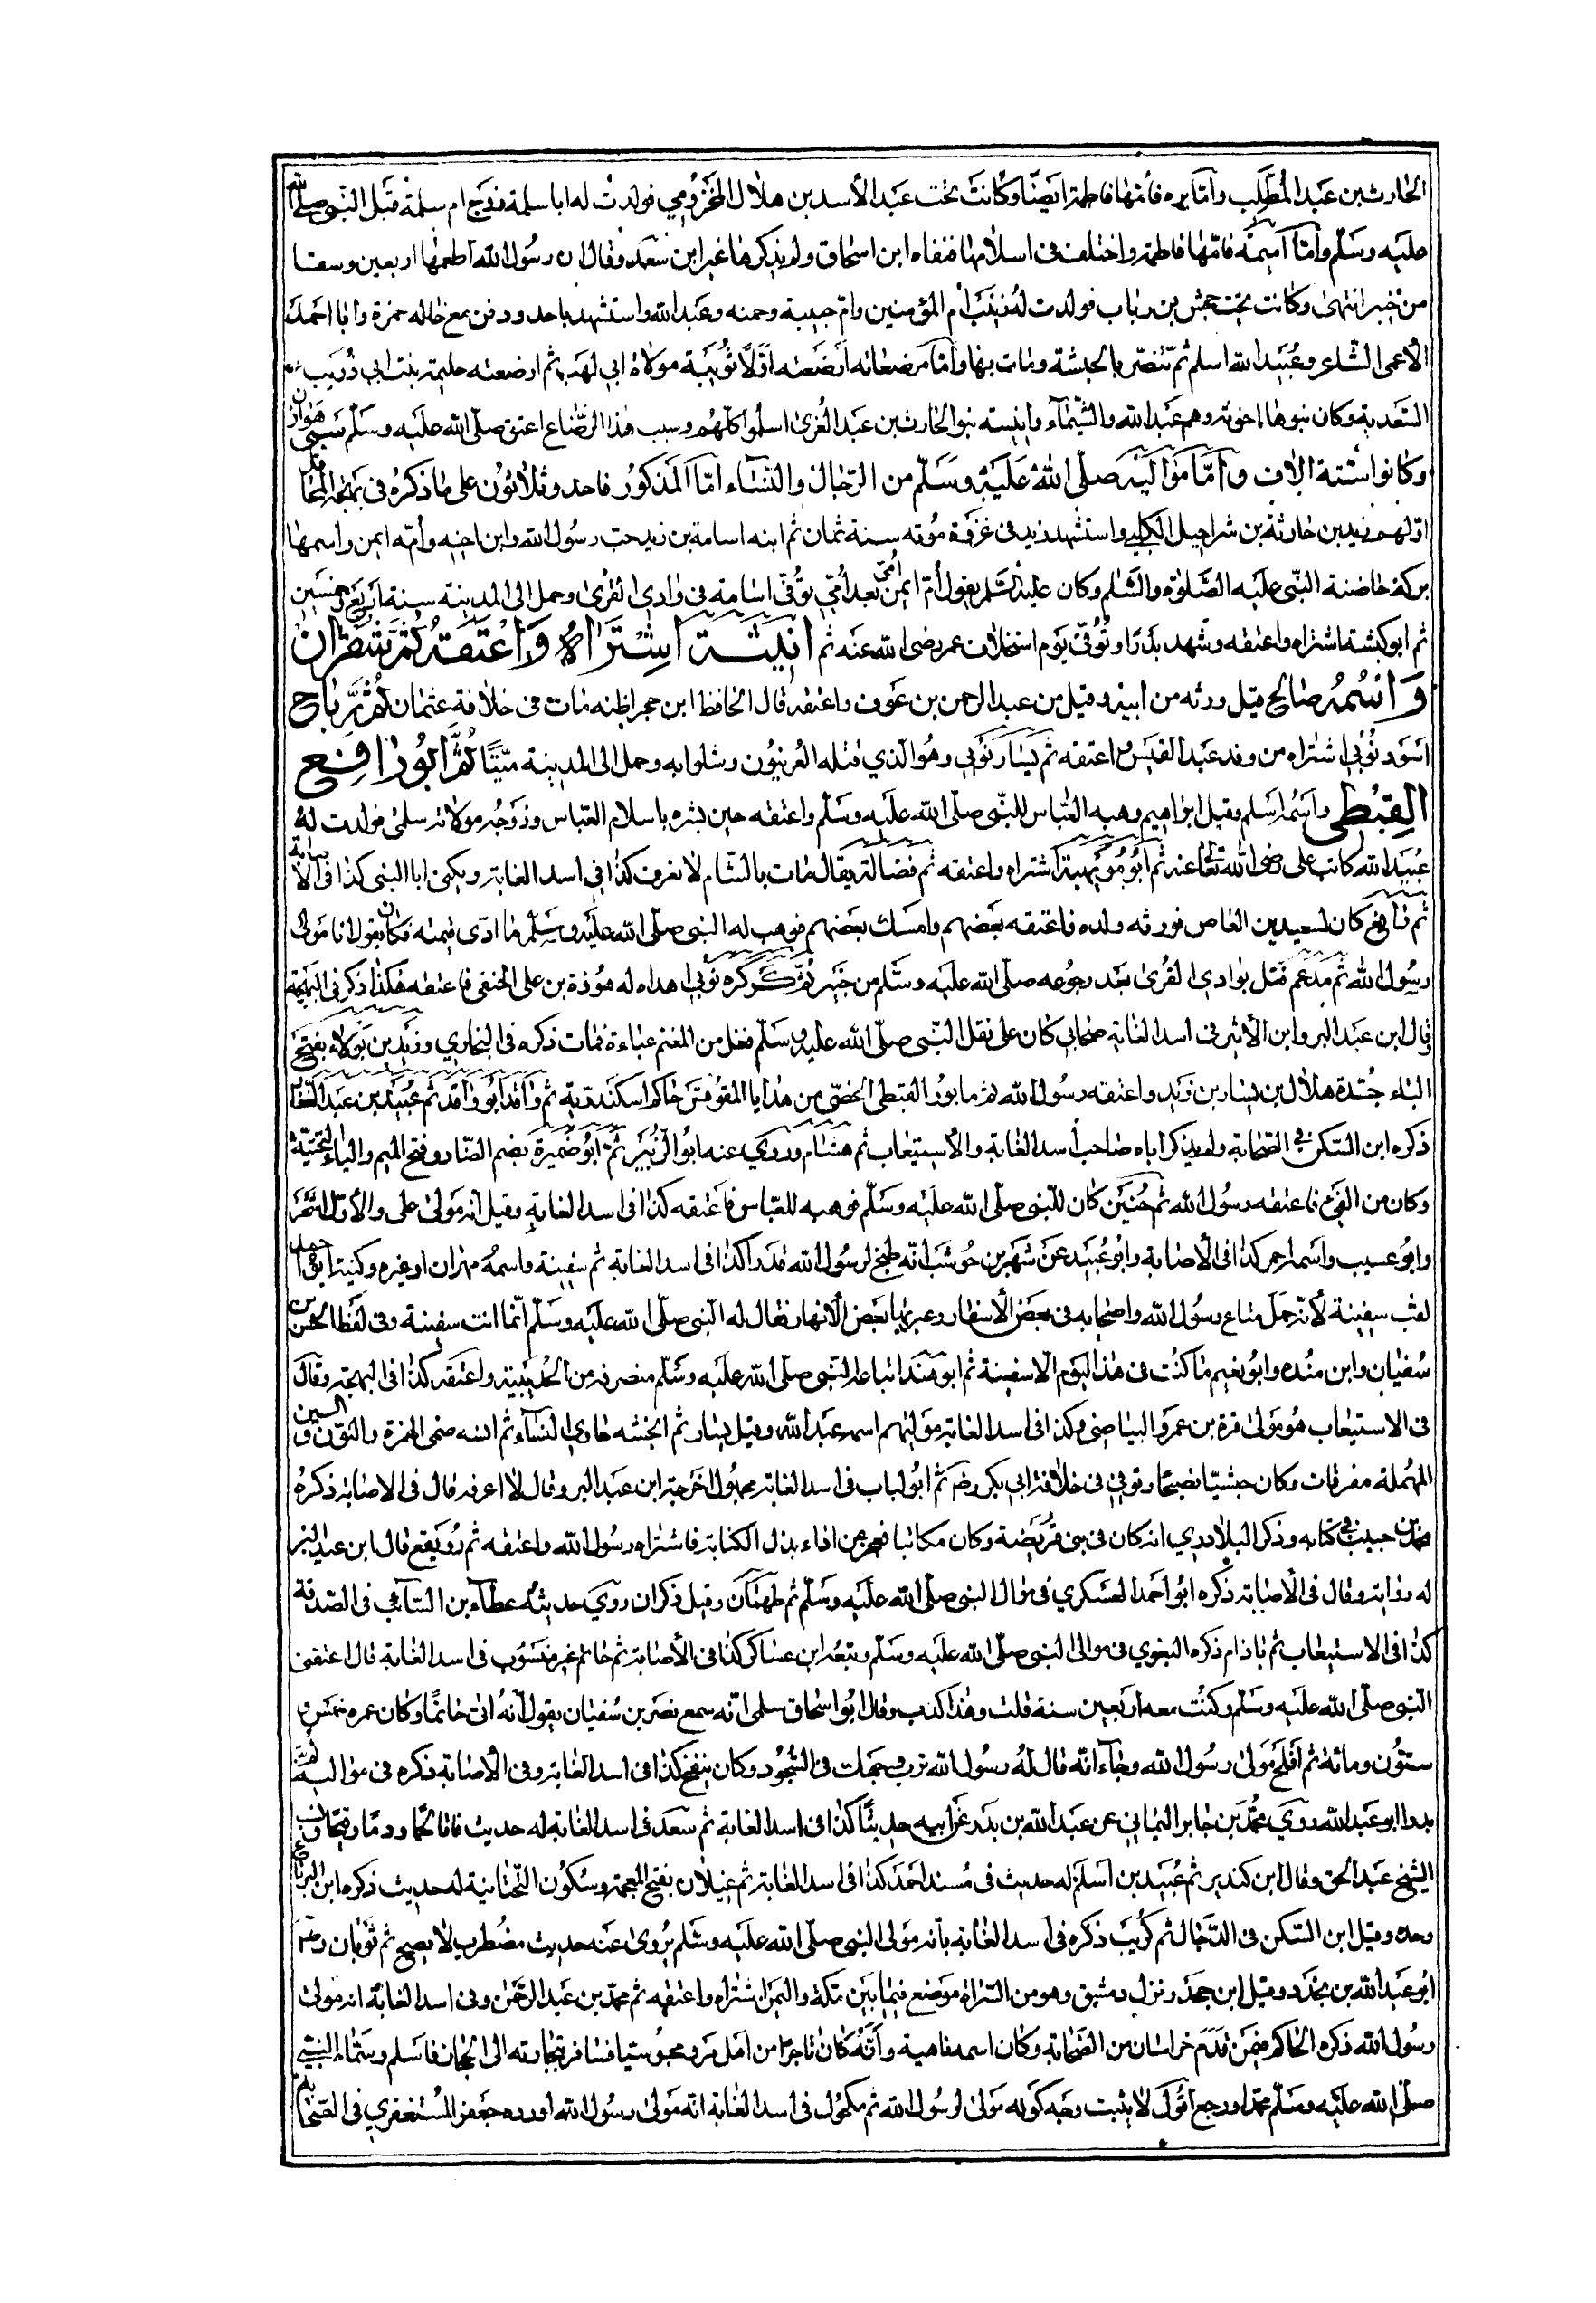 الحارث بن عبد المطلب وأمّا بره فأمّها فاطمة ايضًا وكانت تحت عبد الأسد بن هلال المخزومي فولدت له ابا سلمة زوج ام سلمة قبل النّبي صلّى الله
عليه وسلّم وأمّا آميمة فامّها فاطمة واختلف فى اسلامها فنفاه ابن اسحاق ولم يذكرها غير ابن سعد وقال ان رسُول الله اطعمها اربعين وسقا
من خيبر انتهى وكانت تحت جحش بن رباب فولدت لهُ زينب أم المؤمنين وام حبيبة وحمنه وعبد الله واستشهد باحد ودفن مع خاله حمزة وابا احمد
الأعمى الشّاعر وعُبيد الله اسلم ثمّ تنصّر بالحبشة ومات بها وأمّا مرضعاته أرضعته أوّلًا ثُويبة مولاة ابي لهب ثم ارضعته حليمة بنت ابي ذُويب
السّعدية وكان بنوها اخوته وهم عبد الله والشّيمآء وانيسة بنو الحارث بن عبد العُزى اسلموا كلّهُم وسبب هذا الرّضاع اعتق صلّى الله عليه وسلّم سبى هوازن
وكانوا ستة الاف وأمّا مواليه صلّى اللهُ عليه وسلّم من الرّجال والنسّاء امّا المذكورُ فاحد وثلاثون على ما ذكرهُ فى بهجة المحافل
اوّلهم زيد بن حارثة بن شراحيل الكلبي واستشهد زيد فى غزوة مُوته سنة ثمان ثم ابنه اسامة بن زيد حب رسُول الله وابن احبه وأمّه ايمن واسمها
بركة حاضنة النّبى عليه الصّلوة والسّلم وكان عليه السّلم يقول أمّ ايمن أمي بعد أمّي توُفّى اسامة فى وادي القُرى وحمل الى المدينة سنة اربع وخمسين
ثم ابو كبشة اشتراه واعتقه وشهد بدرًا وتُوفّى يوم استخلاف عمر رضى الله عنه ثم انيسَة اشتراهُ واعتقهُ ثم شقران
واسمُه صالح قيل ورثه من ابيه وقيل من عبد الرحمن بن عوف واعتقه قال الحافظ ابن حجر اظنه مات فى خلافة عثمان ثم رباح
اسود نُوبى اشتراه من وفد عبد القيس واعتقه ثم يسَار نُوبي وهُو الّذي قتله العُرنيُون وشلوا به وحمل الى المدينة ميّتًا ثم ابُو رافِع
القِبطى واسمُه اسلم وقيل ابراهيم وهبه العبّاس للنّبى صلّى الله عليه وسلّم واعتقه حين بشره باسلام العبّاس وزوجهُ مولاته سلمى فولدت لهُ
عُبيد الله كاتب على رضى الله تعا عنه ثم ابُو مُويهبة اشتراه واعتقه ثم فضالة يقال مات بالشّام لا يعرف كذا فى اسد الغابة ويكنى ابا النبى كذا فى الاصابة
ثم نافع كان لسعيد بن العاص فورثه ولده فاعتقه بعضهم وامسك بعضهم فوهب له النبى صلّى الله عليه وسلّم ما ادّى قيمته فكان يقول انا مولى
رسُول الله ثم مدعم قتل بوادي القُرى بعد رجوعه صلّى الله عليه وسلّم من خيبر ثم كركره نوبى اهداه له هُوذة بن على الحنفى فاعتقه هكذا ذكر فى البهجة
قال ابن عبد البر وابن الأثير فى اسد الغابة صحابي كان على نقل النّبى صلّى الله عليه وسلّم فغل من المغنم عباءة فمات ذكره فى البخاري وزيد بن بولاء بفتح
الباء جُدة هلال بن يسار بن زيد واعتقه رسُول الله ثم مابورُ القبطى الخصّى من هدايا المقوقس حاكم اسكندرية ثم واقد ابُو واقد ثم عُبيد بن عبد الغفار
ذكره ابن السّكن فى الصّحابة ولم يذكر اباه صاحب أسد الغابة والأستيعاب ثم هشام وروى عنه ابُو الزّبير ثم ابُو ضُميرة بضم الضّاد وفتح الميم والياء التحتيّة
وكان من الفئ فاعتقه رسُول الله ثم حُنين كان للنّبى صلّى الله عليه وسلّم فوهبه للعبّاس فاعتقه كذا فى اسد الغابة وقيل انه مولى على والأوّل اشهر
وابُو عسيب واسمه احمر كذا فى الأصابة وابُو عُبيد عن شهر بن حُوشب انّه طبخ لرسُول الله قدرًا كذا فى اسد الغابة ثم سفينة واسمهُ مهران او غيره وكنيته
لقب سفينة لأنه حمل متاع رسُول الله واصحابه فى بعض الأسفار وعبر بها بعض الأنهار فقال له النّبى صلّى الله عليه وسلّم انّما انت سفينة وفى لفظ الحسن بن
سُفيان وابن منده وابُو نعيم ما كنت فى هذا اليوم الّا سفينة ثم ابو هند ابتاعه النّبى صلّى الله عليه وسلّم منصرفه من الحُديبية واعتقه كذا فى البهجة وقال
فى الاستيعاب هُو مولى فرة بن عمرو البياضى وكذا فى اسد الغابة مولٰيهم اسمه عبد الله وقيل يسار ثم انجشه حادي النسّاء ثم انسه ضمى الهمزة والنوّن والسين
المهُملة مفرقات وكان حبشيّا فصيحًا وتوفى فى خلافة ابي بكر رضه ثم ابُو لباب فى اسد الغابة مجهُول اخرجه ابن عبد البر وقال لا اعرفه قال فى الاصابة ذكرهُ
محمّد بن حبيب فى كتابه وذكر البلاذري انه كان فى بنى قُريضة وكان مكاتبا فعجز عن اداء بذل الكتابة فاشتراه رسُول الله واعتقه ثم رُويفع قال ابن عبد البر
له رواية وقال فى الأصابة ذكره ابُو احمد العسكري فى موال النبى صلّى الله عليه وسلّم ثم طهمَان وقيل ذكران روي حديثهُ عطاء بن السّائب فى الصّدقة
كذا فى الاستيعاب ثم باذام ذكره البغوي فى موالى النبى صلّى الله عليه وسلّم وتبعهُ ابن عساكر كذا فى الأصابة ثم حاتم غير منسُوب فى اسد الغابة قال اعتقنى
النّبى صلّى الله عليه وسلّم وكنُت معه اربعين سنة قلت وهذا كذب وقال ابُو اسحاق سلمى انّه سمع نصر بن سُفيان يقول انّهُ اتى حاتمًا وكان عمره خمس و
ستّون ومائة ثم افلح مولى رسُول الله وجاء انّه قال لهُ رسُول الله ترب وجهك فى السُّجود وكان ينفخ كذا فى اسد الغابة وفى الأصابة ذكره فى مواليه ثم
بدر ابو عبد الله روى محُمّد بن جابر اليمانى عن عبد الله بن بدر عن ابيه حديثًا كذا فى اسد الغابة ثم سعد فى اسد الغابة له حديث
الشيخ عبد الحق وقال ابن كندير ثم عُبيد بن اسلم له حديث فى مُسند احمد كذا فى اسد الغابة ثم غيلان بفتح المعجمة وسُكون التّحتانية له حديث ذكره ابن الدباغ
وحده وقيل ابن السّكن فى الدّجال ثم كُريب ذكره فى أسد الغابة بأنه مولى النبى صلّى الله عليه وسلّم يُروى عنه حديث مضُطرب لا يصح ثم ثوبان رضه
ابُو عبد الله بن بجدد وقيل ابن جحدر نزل دمشق وهو من السّراة موضع فيما بين مكة واليمن اشتراه واعتقه ثم محمّد بن عبد الرّحمن وفى اسد الغابة انه مولى
رسُول الله ذكره الحاكم فيمن قدم خراسان من الصّحابة وكان اسمه ماهية وأنّهُ كان تاجرا من اهل مرو مجوسيّا فسافر بتجارته الى الحجاز فاسلم وسمّاه النبى
صلّى الله عليه وسلّم محمّدا ورجع اقُول لا يثبت وجه كونه مولى لرسُول الله ثم مكحُول فى اسد الغابة انّه مولى رسُول الله اورده جعفر المُستغفري فى الصّحابة